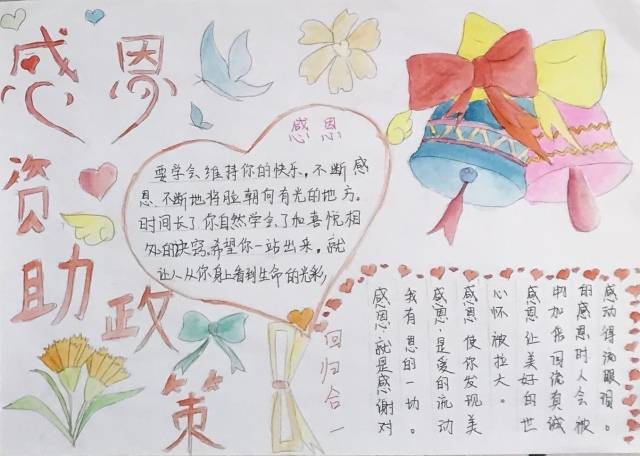 感恩
资助政策
感恩
要学会维持你的快乐,不断感
恩.不断地将脸朝向有光的地方。
时间长了,你自然学会了加喜悦相
处的诀窍.希望你一站出来,就
让人从你身上看到生命的光彩,
回归合一
感恩.就是感谢对
我有恩的一切。
感恩.是爱的流动
感恩使你发现美
心怀被拉大。
感恩让美好的世
加倍回馈真诚
的感恩时人会被
感动得润眼眶。